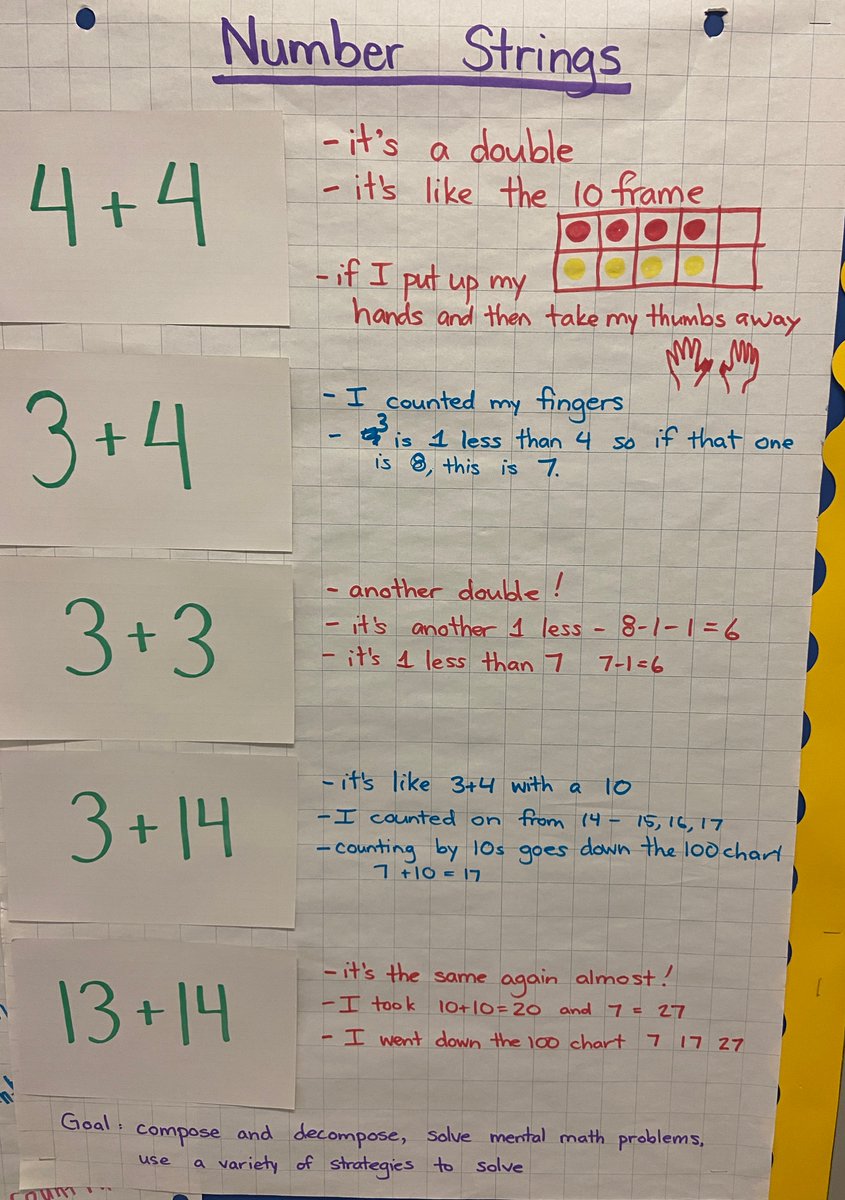 Number Strings
4 + 4
- it's a double
- it's like the 10 frame
- if I put up my
hands and then take my thumbs away
3 + 4
- I counted my fingers
- 3 is 1 less than 4 so if that one
is 8, this is 7.
3 + 3
- another double!
- it's another 1 less - 8-1-1=6
- it's 1 less than 7 7-1=6
3 + 14
- it's like 3+4 with a 10
- I counted on from 14 - 15, 16, 17
- counting by 10s goes down the 100 chart
7 +10 = 17
13 + 14
- it's the same again almost!
- I took 10+10=20 and 7 = 27
- I went down the 100 chart 7 17 27
Goal: compose and decompose, solve mental math problems,
use a variety of strategies to solve